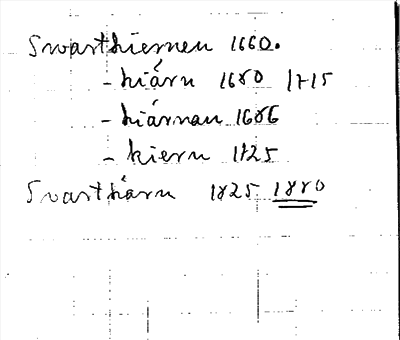 Svarthiernen 1660.
- hiärn 1680 1715
- hiärnan 1686
- kiern 1725
Svartkärn 1825 1880